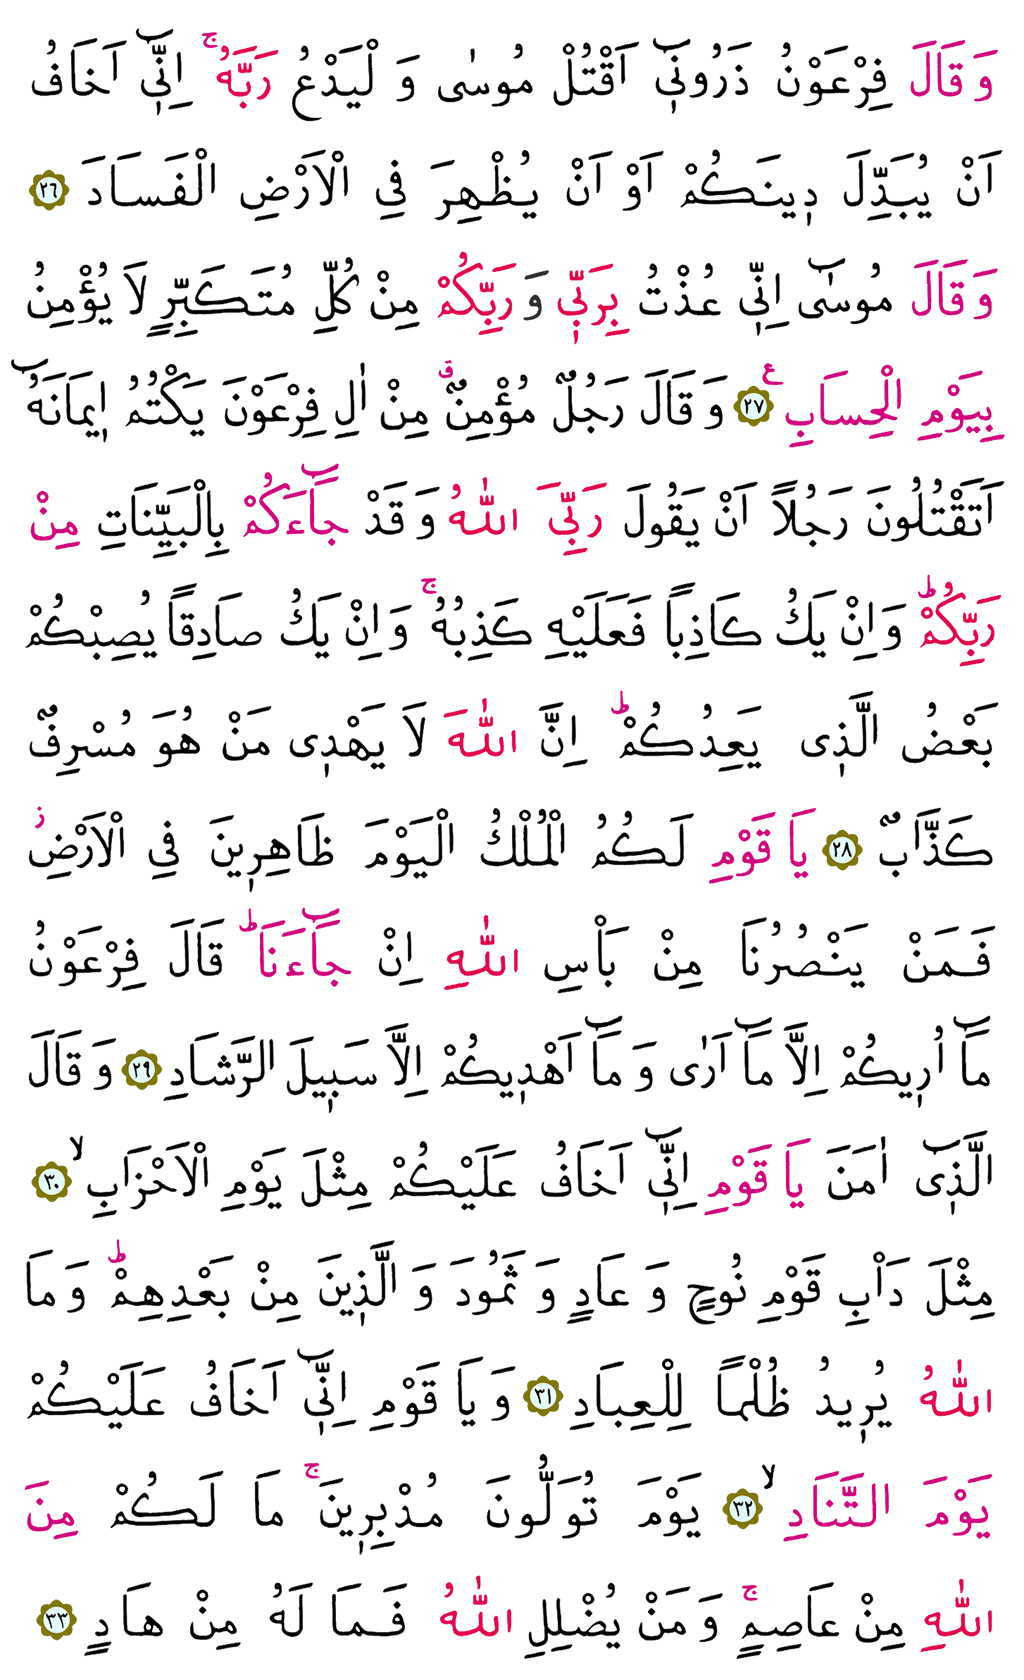 وَقَالَ فِرْعَوْنُ ذَرُونٖٓى اَقْتُلْ مُوسٰى وَلْيَدْعُ رَبَّهُۚ اِنّٖٓى اَخَافُ
اَنْ يُبَدِّلَ دٖينَكُمْ اَوْ اَنْ يُظْهِرَ فِى الْاَرْضِ الْفَسَادَ ﴿٢٦﴾
وَقَالَ مُوسٰٓى اِنّٖى عُذْتُ بِرَبّٖى وَرَبِّكُمْ مِنْ كُلِّ مُتَكَبِّرٍ لَا يُؤْمِنُ
بِيَوْمِ الْحِسَابِ ࣖ ﴿٢٧﴾ وَقَالَ رَجُلٌ مُؤْمِنٌࣗ مِنْ اٰلِ فِرْعَوْنَ يَكْتُمُ اٖيمَانَهُٓ
اَتَقْتُلُونَ رَجُلاً اَنْ يَقُولَ رَبِّىَ اللّٰهُ وَقَدْ جَٓاءَكُمْ بِالْبَيِّنَاتِ مِنْ
رَبِّكُمْؕ وَاِنْ يَكُ كَاذِباً فَعَلَيْهِ كَذِبُهُۚ وَاِنْ يَكُ صَادِقاً يُصِبْكُمْ
بَعْضُ الَّذٖى يَعِدُكُمْؕ اِنَّ اللّٰهَ لَا يَهْدٖى مَنْ هُوَ مُسْرِفٌ
كَذَّابٌ ﴿٢٨﴾ يَا قَوْمِ لَكُمُ الْمُلْكُ الْيَوْمَ ظَاهِرٖينَ فِى الْاَرْضِؗ
فَمَنْ يَنْصُرُنَا مِنْ بَاْسِ اللّٰهِ اِنْ جَٓاءَنَاؕ قَالَ فِرْعَوْنُ
مَٓا اُرٖيكُمْ اِلَّا مَٓا اَرٰى وَمَٓا اَهْدٖيكُمْ اِلَّا سَبٖيلَ الرَّشَادِ ﴿٢٩﴾ وَقَالَ
الَّذٖٓى اٰمَنَ يَا قَوْمِ اِنّٖٓى اَخَافُ عَلَيْكُمْ مِثْلَ يَوْمِ الْاَحْزَابِۙ ﴿٣٠﴾
مِثْلَ دَاْبِ قَوْمِ نُوحٍ وَعَادٍ وَثَمُودَ وَالَّذٖينَ مِنْ بَعْدِهِمْؕ وَمَا
اللّٰهُ يُرٖيدُ ظُلْماً لِلْعِبَادِ ﴿٣١﴾ وَيَا قَوْمِ اِنّٖٓى اَخَافُ عَلَيْكُمْ
يَوْمَ التَّنَادِۙ ﴿٣٢﴾ يَوْمَ تُوَلُّونَ مُدْبِرٖينَۚ مَا لَكُمْ مِنَ
اللّٰهِ مِنْ عَاصِمٍۚ وَمَنْ يُضْلِلِ اللّٰهُ فَمَا لَهُ مِنْ هَادٍ ﴿٣٣﴾